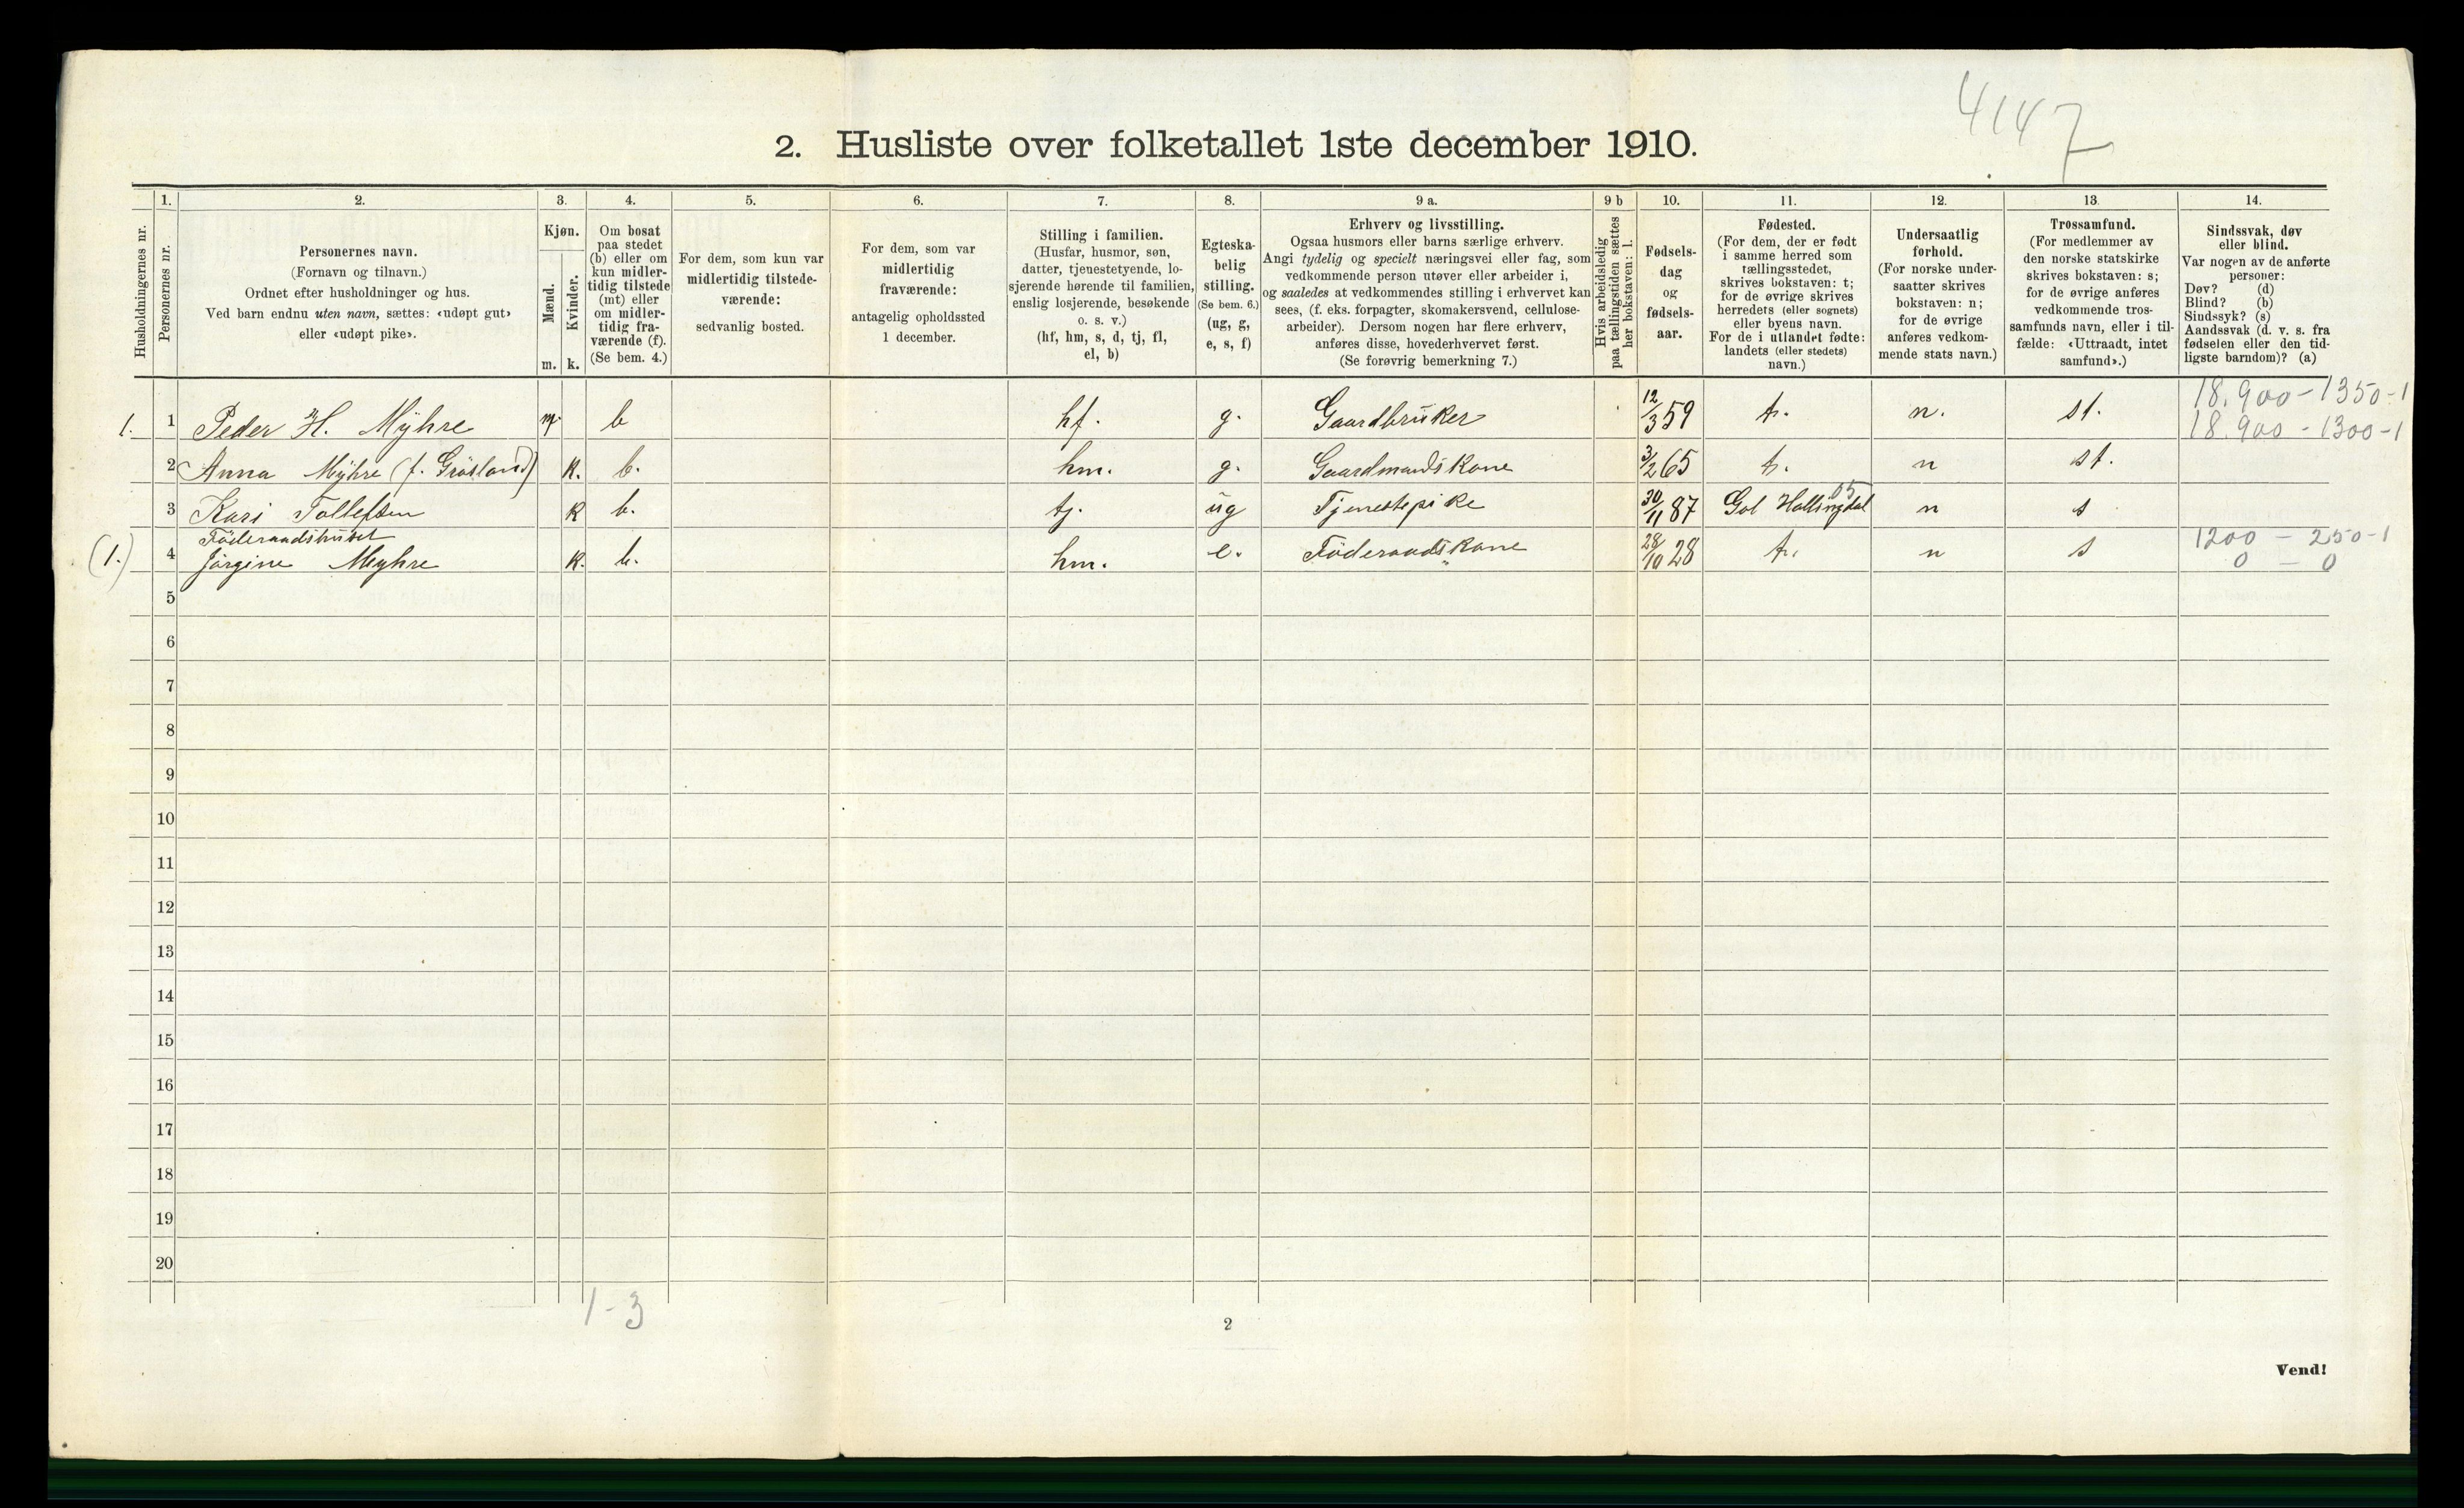 4147
2. Husliste over folketallet 1ste december 1910.
Husholdningernes nr.
1. Personernes nr.
2. Personernes navn. (Fornavn og tilnavn.) Ordnet efter husholdninger og hus. Ved barn endnu uten navn, sættes: «udøpt gut» eller «udøpt pike».
3. Kjøn. Mænd. m. Kvinder. k.
4. Om bosat paa stedet (b) eller om kun midler-tidig tilstede (mt) eller om midler-tidig fra-værende (f). (Se bem. 4.)
5. For dem, som kun var midlertidig tilstede-værende: sedvanlig bosted.
6. For dem, som var midlertidig fraværende: antagelig opholdssted 1 december.
7. Stilling i familien. (Husfar, husmor, søn, datter, tjenestetyende, lo-sjerende hørende til familien, enslig losjerende, besøkende o. s. v.) (hf, hm, s, d, tj, fl, el, b)
8. Egteska-belig stilling. (Se bem. 6.) (ug, g, e, s, f)
9 a. Erhverv og livsstilling. Ogsaa husmors eller barns særlige erhverv. Angi tydelig og specielt næringsvei eller fag, som vedkommende person utøver eller arbeider i, og saaledes at vedkommendes stilling i erhvervet kan sees, (f. eks. forpagter, skomakersvend, cellulose-arbeider). Dersom nogen har flere erhverv, anføres disse, hovederhvervet først. (Se forøvrig bemerkning 7.)
9 b Hvis arbeidsledig paa tællingstiden sættes her bokstaven: l.
10. Fødsels-dag og fødsels-aar.
11. Fødested. (For dem, der er født i samme herred som tællingsstedet, skrives bokstaven: t; for de øvrige skrives herredets (eller sognets) eller byens navn. For de i utlandet fødte: landets (eller stedets) navn.)
12. Undersaatlig forhold. (For norske under-saatter skrives bokstaven: n; for de øvrige anføres vedkom-mende stats navn.)
13. Trossamfund. (For medlemmer av den norske statskirke skrives bokstaven: s; for de øvrige anføres vedkommende tros-samfunds navn, eller i til-fælde: «Uttraadt, intet samfund».)
14. Sindssvak, døv eller blind. Var nogen av de anførte personer: Døv? (d) Blind? (b) Sindssyk? (s) Aandssvak (d. v. s. fra fødselen eller den tid-ligste barndom)? (a)
18.900-1350-1
1. 1 Peder H. Myhre m b hf. g. Gaardbruker 12/3 59 t. n. st. 18.900-1300-1
2 Anna Myhre (f. Gråsland) k. b. hm. g. Gaardmandskone 3/2 65 t. n st.
3 Kari Tollefsen k b. tj. ug Tjenestepike 30/11 87 Gol Hallingdal 05 n s
Föderaadshuset 1200 - 250-1
(1.) 4 Jörgine Myhre k. b. hm. e. Föderaadskone 28/10 28 t. n s 0 - 0
5
6
7
8
9
10
11
12
13
14
15
16
17
18
19
20
1-3
2
Vend!